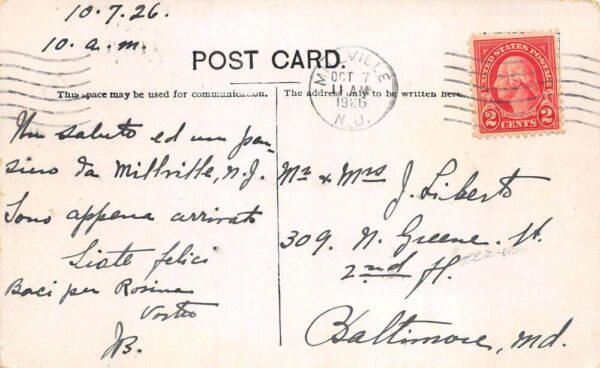 10.7.26.
10. a.m.
POST CARD.
This space may be used for communication.
The address only to be written here
MILLVILLE
OCT 7
11 AM
1926
N.J.
UNITED STATES POSTAGE
2 CENTS 2
Un saluto ed un pen-
siero da Millville, N.J.
Sono appena arrivato
Siate felici
Baci per Rosina
Vostro
JB.
Mr & Mrs J. Liberto
309. N. Greene. St.
2nd fl.
Baltimore, Md.